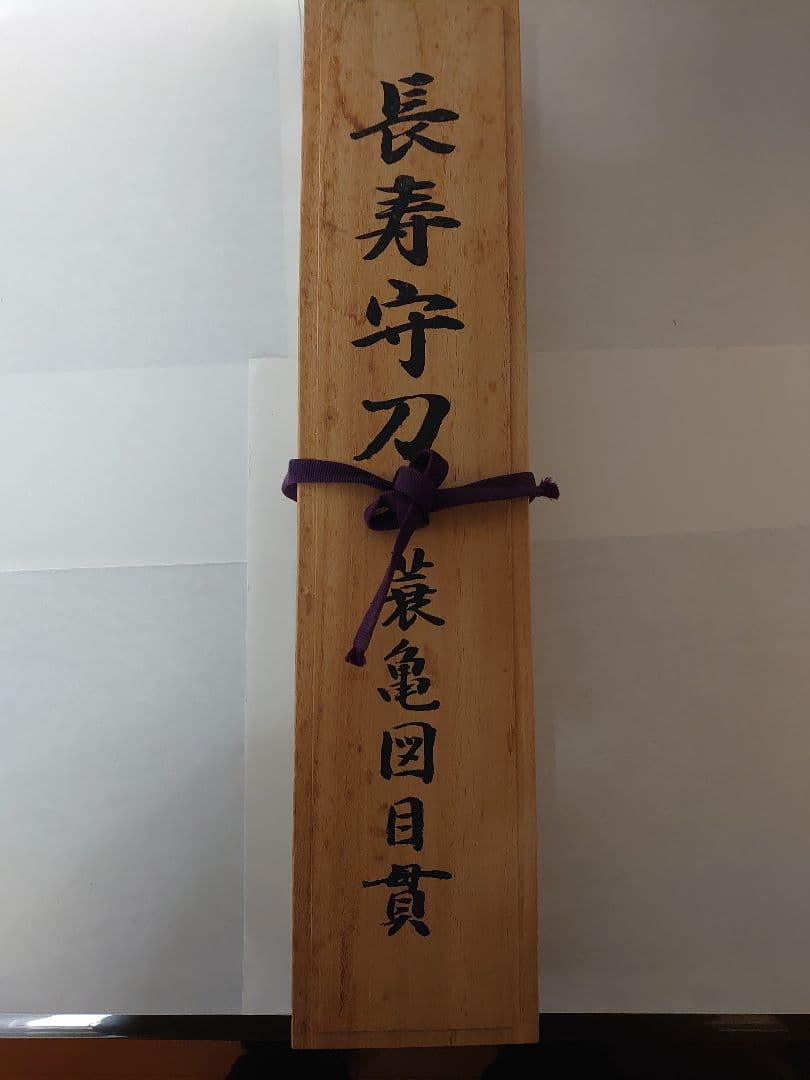 長寿守刀 蓑亀図目貫